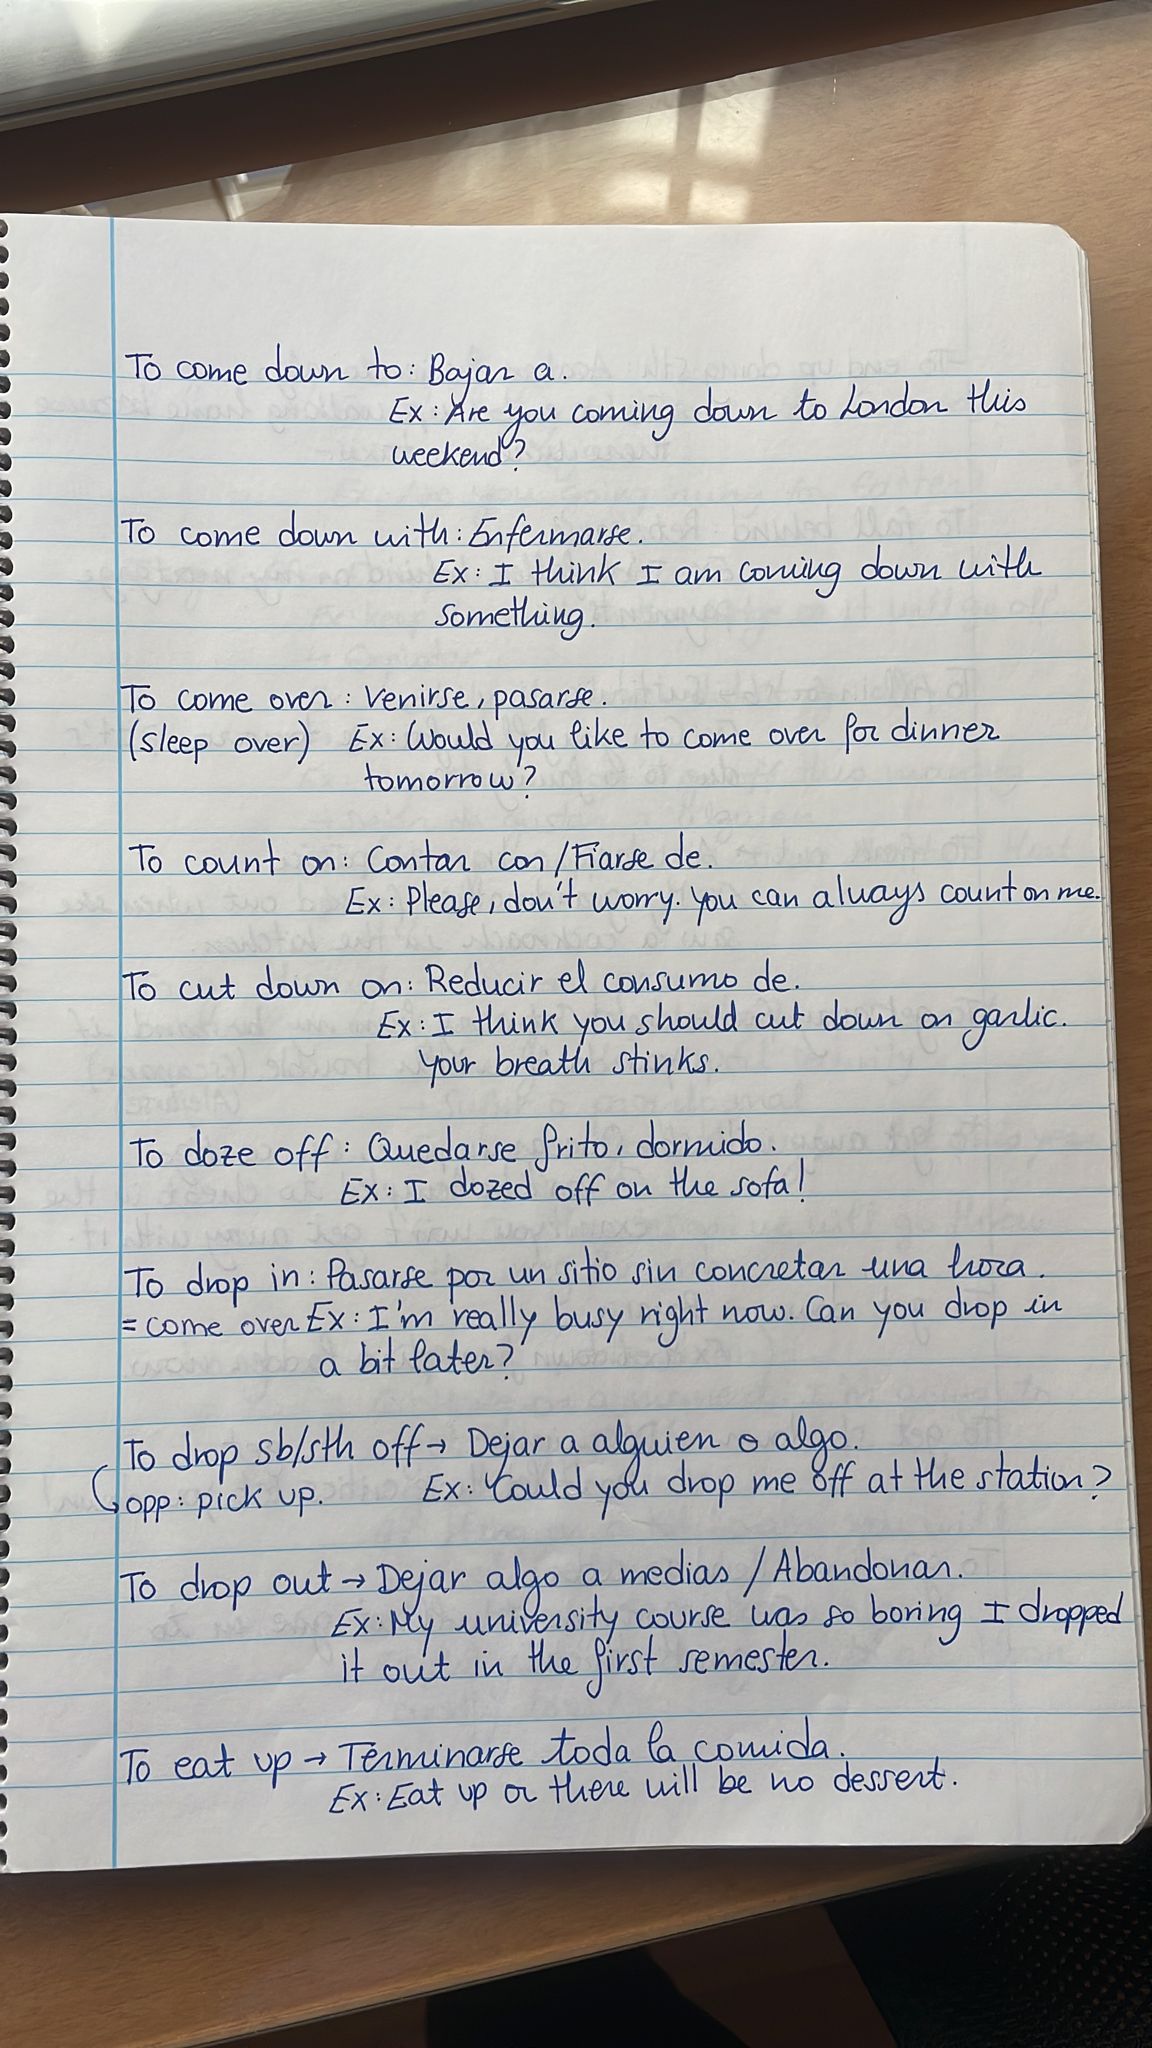 To come down to: Bajar a.
Ex: Are you coming down to London this
weekend?
To come down with: Enfermarse.
Ex: I think I am coming down with
something.
To come over: Venirse, pasarse.
(sleep over) Ex: Would you like to come over for dinner
tomorrow?
To count on: Contar con/Fiarse de.
Ex: Please, don't worry. You can always count on me.
To cut down on: Reducir el consumo de.
Ex: I think you should cut down on garlic.
Your breath stinks.
To doze off: Quedarse frito, dormido.
Ex: I dozed off on the sofa!
To drop in: Pasarse por un sitio sin concretar una hora.
= come over Ex: I'm really busy right now. Can you drop in
a bit later?
To drop sb/sth off → Dejar a alguien o algo.
opp: pick up. Ex: Could you drop me off at the station?
To drop out → Dejar algo a medias / Abandonar.
Ex: My university course was so boring I dropped
it out in the first semester.
To eat up → Terminarse toda la comida.
Ex: Eat up or there will be no dessert.